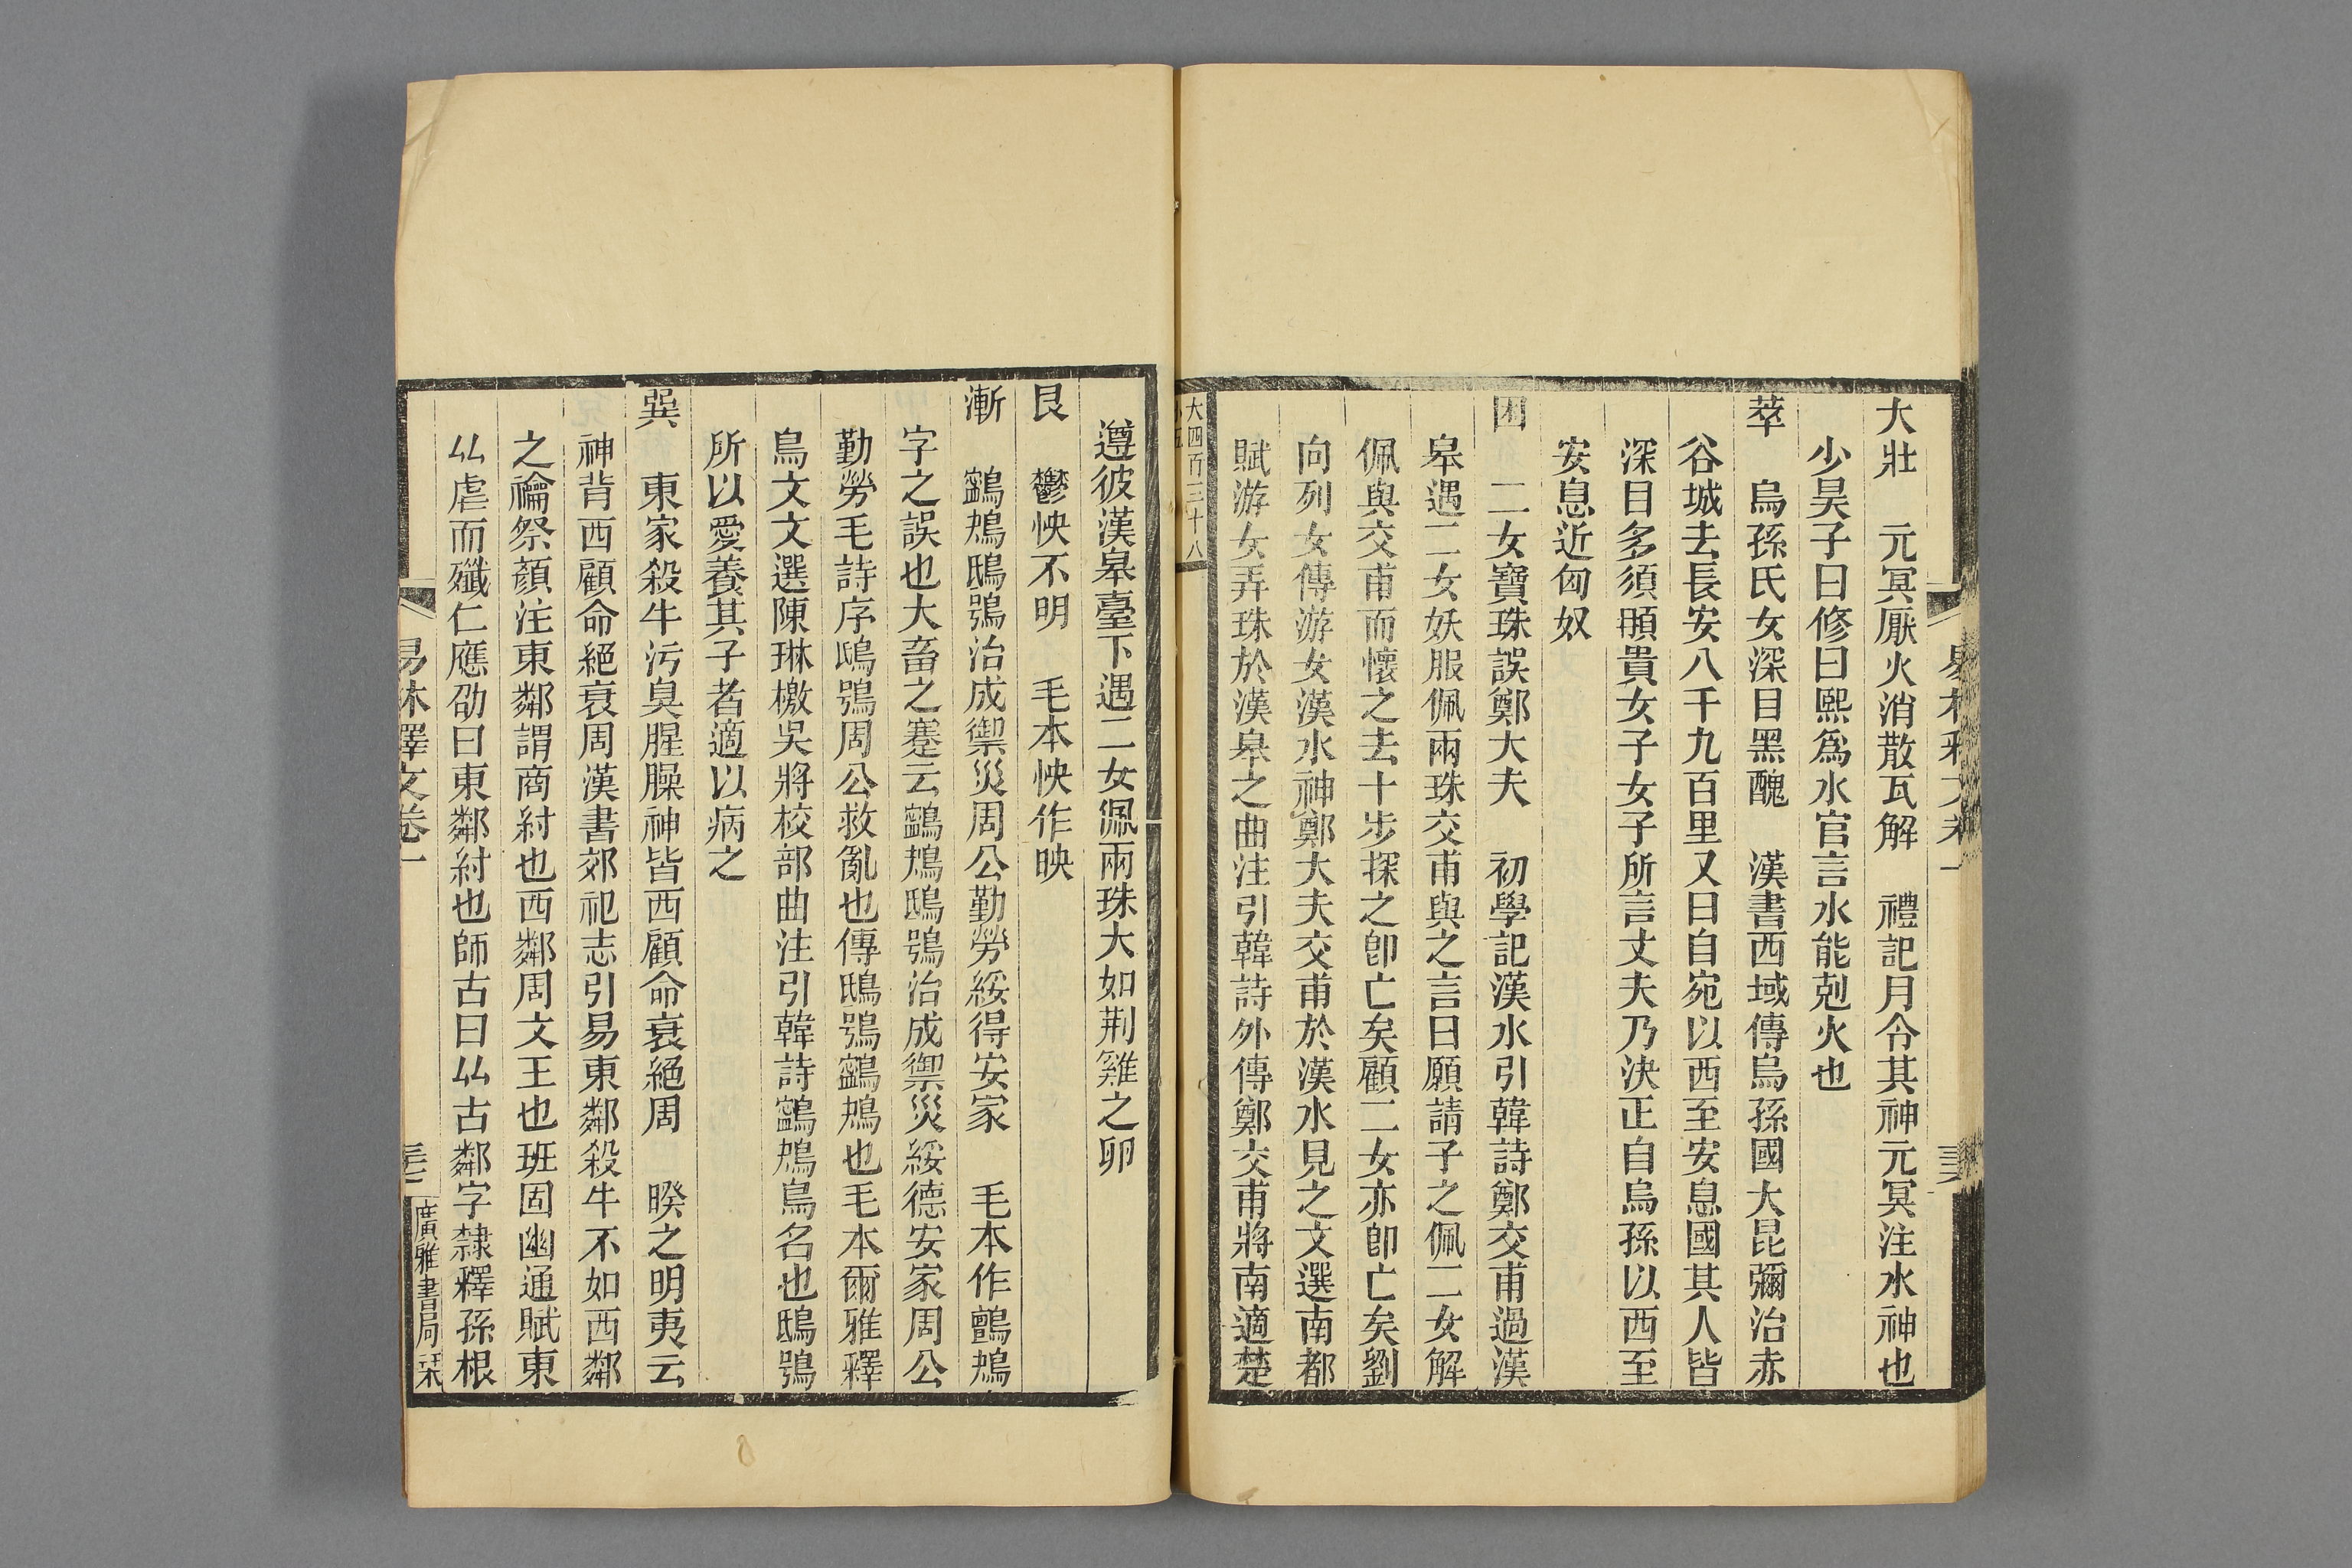 大壯　元冥厭火消散瓦解　禮記月令其神元冥注水神也
少昊子曰修曰熙爲水官言水能剋火也
萃　烏孫氏女深目黑醜　漢書西域傳烏孫國大昆彌治赤
谷城去長安八千九百里又曰自宛以西至安息國其人皆
深目多須䫇貴女子女子所言丈夫乃決正自烏孫以西至
安息近匈奴
困　二女寶珠誤鄭大夫　初學記漢水引韓詩鄭交甫過漢
皋遇二女妖服佩兩珠交甫與之言曰願請子之佩二女解
佩與交甫而懷之去十步探之卽亡矣顧二女亦卽亡矣劉
向列女傳游女漢水神鄭大夫交甫於漢水見之文選南都
賦游女弄珠於漢皋之曲注引韓詩外傳鄭交甫將南適楚
大四百三十八
遵彼漢皋臺下遇二女佩兩珠大如荆雞之卵
艮　鬱怏不明　毛本怏作映
漸　鸋鴂鴟鴞治成禦災周公勤勞綏得安家　毛本作鸇鴂
字之誤也大畜之蹇云鸋鴂鴟鴞治成禦災綏德安家周公
勤勞毛詩序鴟鴞周公救亂也傳鴟鴞鸋鴂也毛本爾雅釋
鳥文文選陳琳檄吳將校部曲注引韓詩鸋鴂鳥名也鴟鴞
所以愛養其子者適以病之
巽　東家殺牛污臭腥臊神皆西顧命衰絕周　睽之明夷云
神背西顧命絕衰周漢書郊祀志引易東鄰殺牛不如西鄰
之禴祭顏注東鄰謂商紂也西鄰周文王也班固幽通賦東
厸虐而殲仁應劭曰東鄰紂也師古曰厸古鄰字隸釋孫根
易林釋文卷一
廣雅書局栞